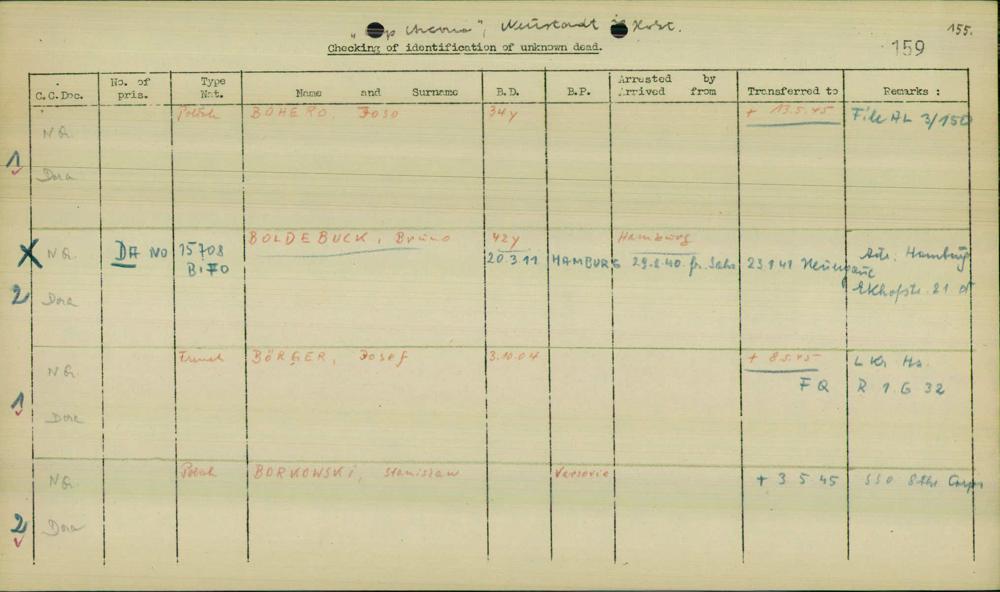 "Cap Arcona", Neustadt in Holst.
155.
159
Checking of identification of unknown dead.
C.C.Doc.
No. of pris.
Type Nat.
Name and Surname
B.D.
B.P.
Arrested by
Arrived from
Transferred to
Remarks :
Polish BOHERO, Joso 34y + 13.5.45 File AL 3/150
NG.
1
Dora
BOLDEBUCK, Bruno 42y Hamburg
X NG. DA NO 15708 20.3.11 HAMBURG 29.2.40 fr. Sahs 23.1.41 Neuengamme Adr. Hamburg
BiFO
2 Dora Ekhofstr. 21
French BÖRGER, Josef 3.10.04 + 8.5.45 L Kr Ha.
NG. F Q R 1. G 32
1
Dora
Polish BORKOWSKI, Stanislaw Varsovie + 3 5 45 SSO 8th Corps
NG.
2 Dora